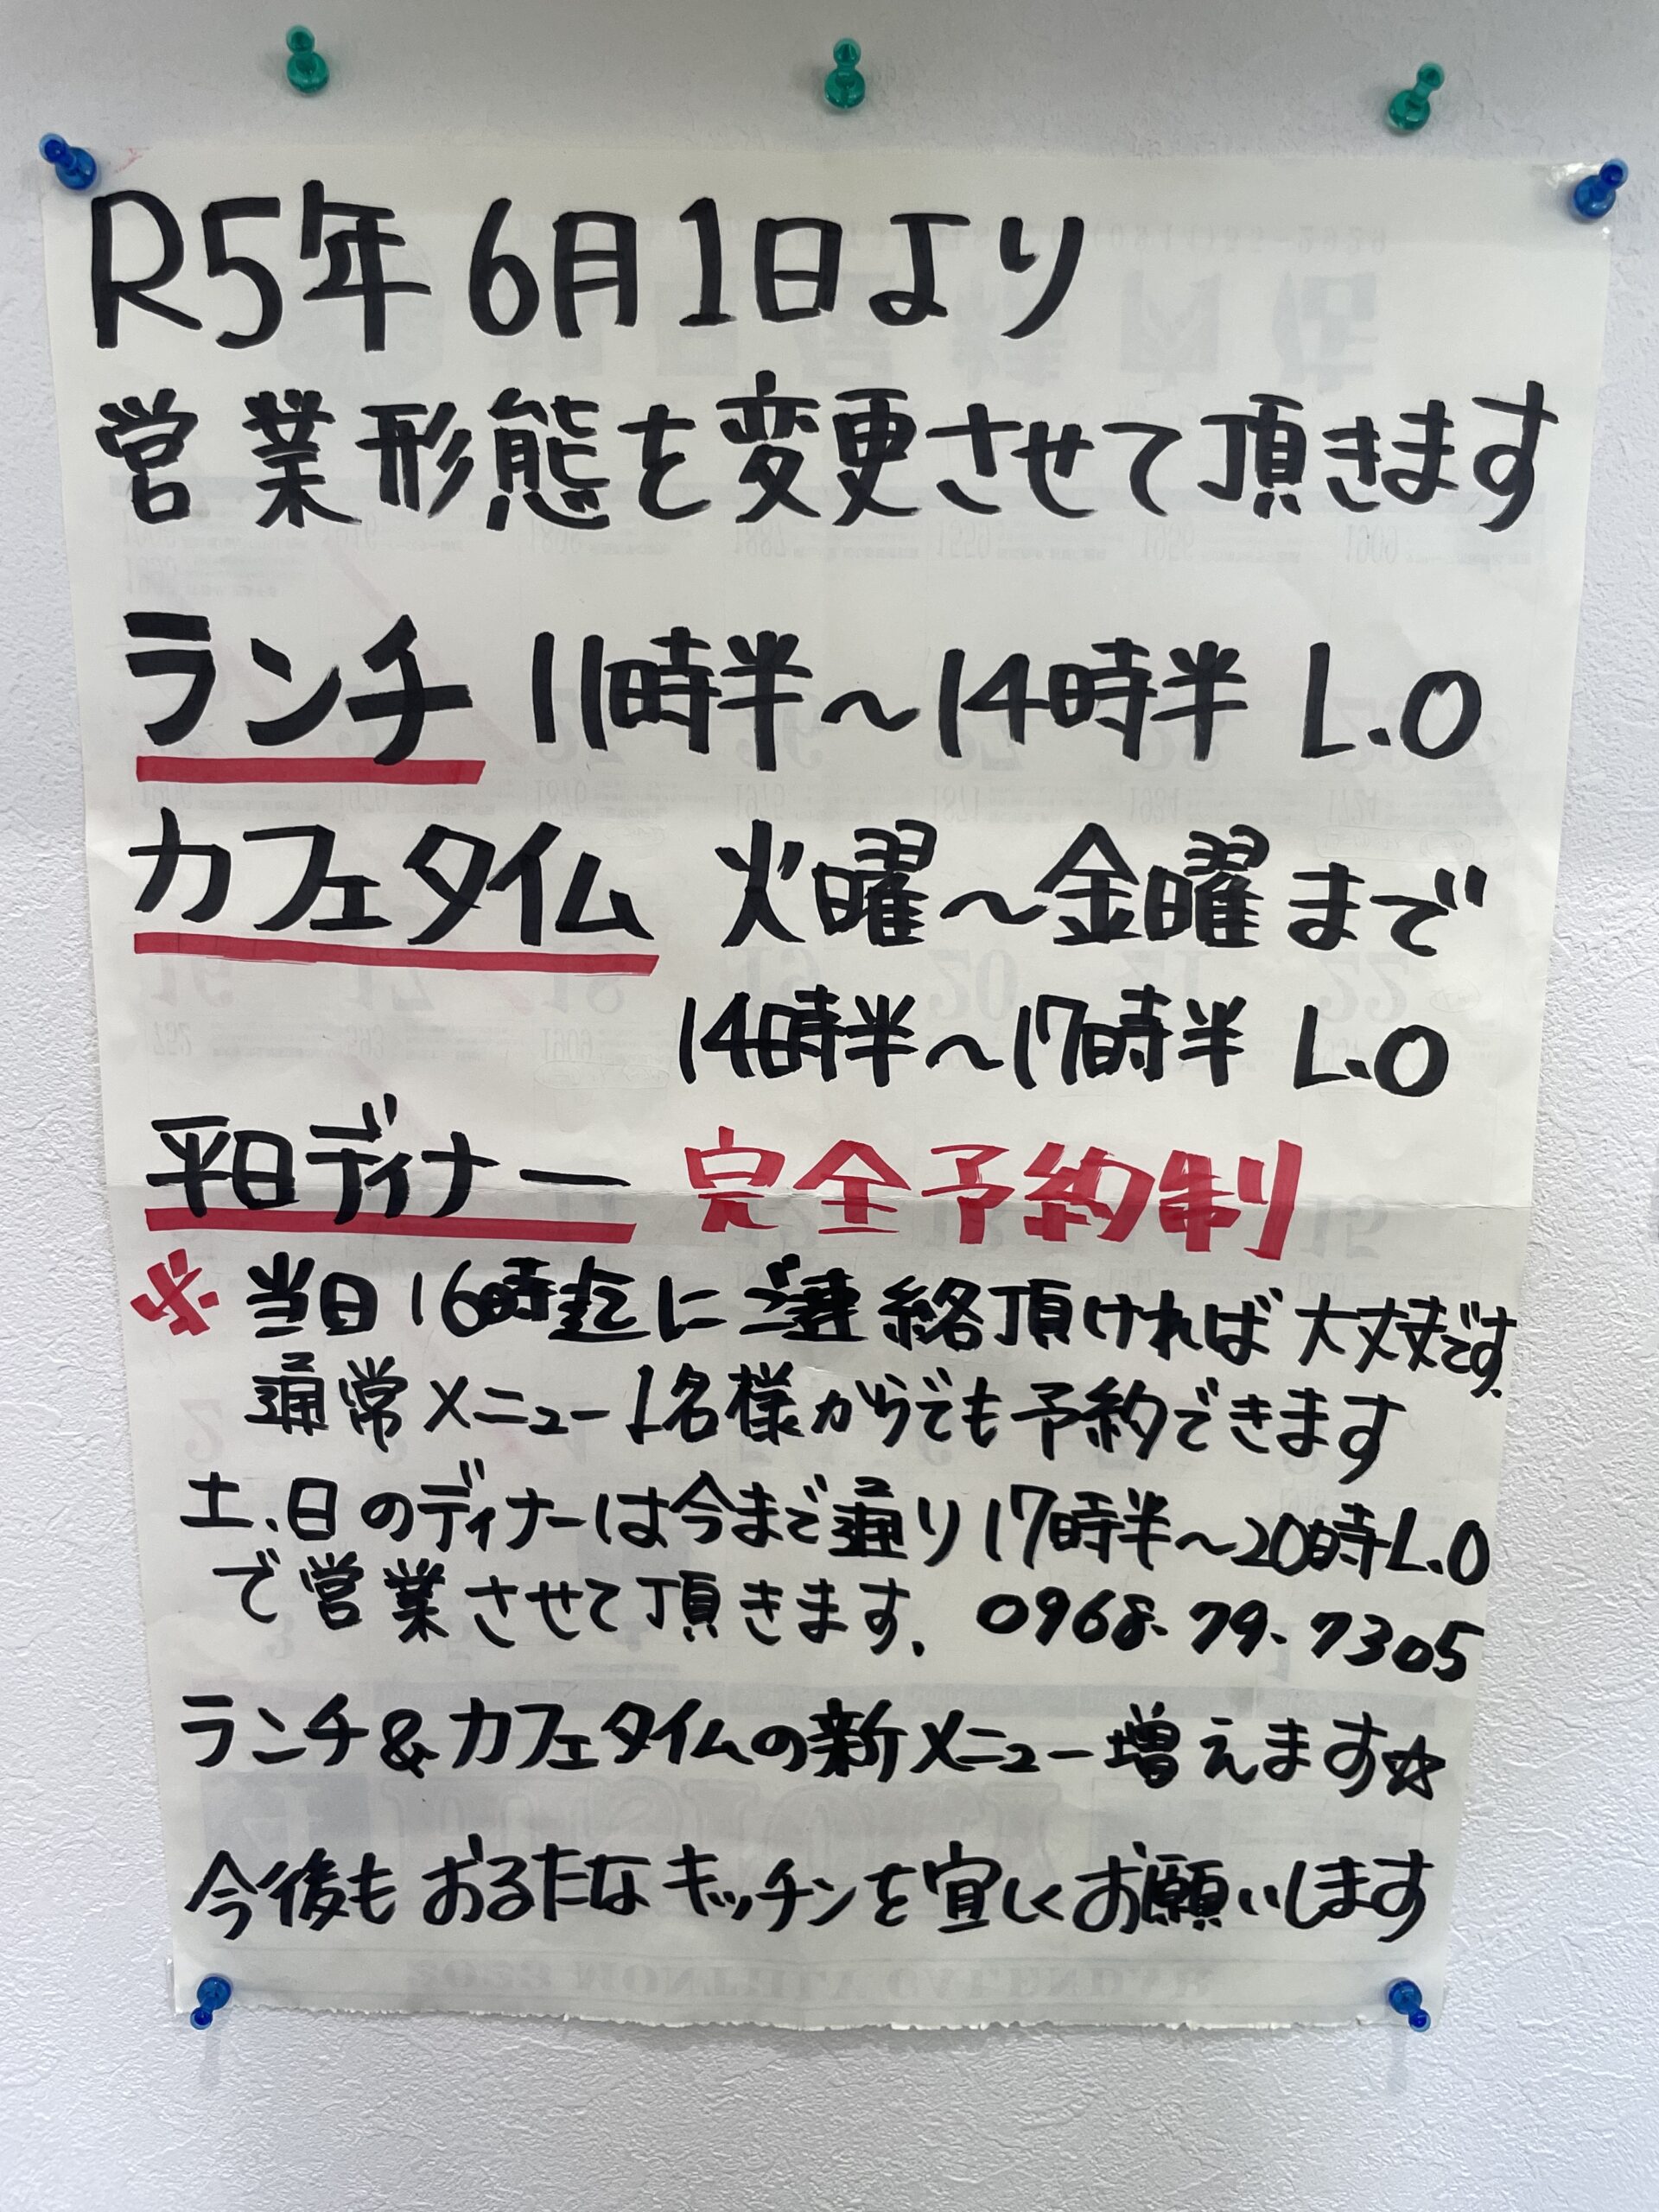 R5年 6月1日より
営業形態を変更させて頂きます
ランチ 11時半～14時半 L.O
カフェタイム 火曜～金曜まで
14時半～17時半 L.O
平日ディナー 完全予約制
※ 当日16時迄にご連絡頂ければ大丈夫です.
通常メニュー1名様からでも予約できます
土、日のディナーは今まで通り17時半～20時L.O
で営業させて頂きます. 0968-79-7305
ランチ&カフェタイムの新メニュー増えます☆
今後もおるたなキッチンを宜しくお願いします